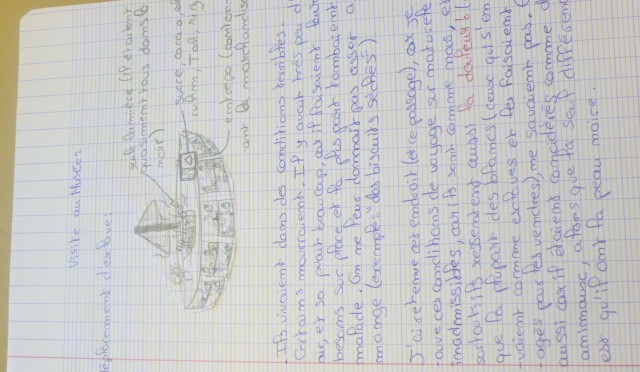 Visite au Musée:
déplacement d'esclave:
sucre, cacao,
entrepot (conten-
ant la marchandise
- Ils vivaient dans des conditions terribles.
Certains mourraient. Il y avait très peu d'
air, et sa puait beaucoup, car il faisaient leurs
besoins sur place et la plus part tombaient
malade. On ne leur donnait pas asser a
manger (exemple: des biscuits séchés)
J'ai retenue cet endroit (et ce passage), car je
ces conditions de voyage sur
inadmissibles, car ils sont comme nous, et
surtout ils ressentent aussi la douleur
que la plupart des blancs (ceux qui s'en
-vaient comme esclaves et les faisaient
-ages pour les vendres), ne savaient pas.
aussi car il étaient considérés comme d
animaux, alors que la seul différen
est qu'il ont la peau noire.